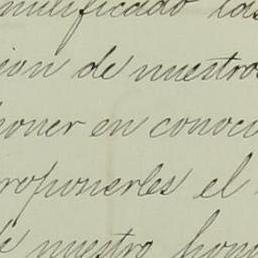 nulificado las
ion de nuestros
poner en conoci
roponerles el
de nuestro hono